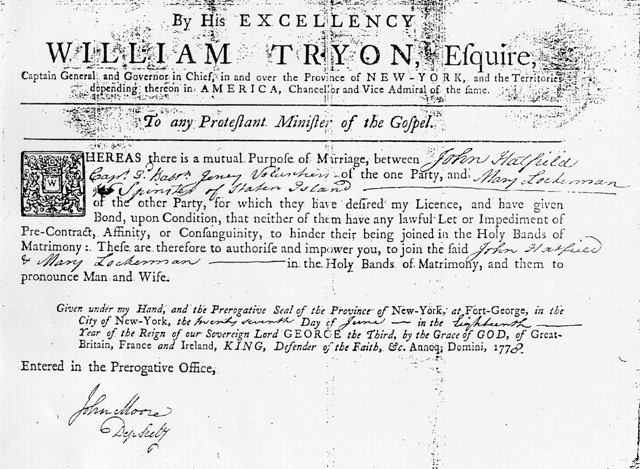 By His EXCELLENCY
WILLIAM TRYON, Esquire,
Captain General and Governor in Chief, in and over the Province of NEW-YORK, and the Territories
depending thereon in AMERICA, Chancellor and Vice Admiral of the same.
To any Protestant Minister of the Gospel.
WHEREAS there is a mutual Purpose of Marriage, between John Hatfield
Capt. 3. Batn. Jersey Volunteers of the one Party, and Mary Lockerman
Spinster of Staten Island
of the other Party, for which they have desired my Licence, and have given
Bond, upon Condition, that neither of them have any lawful Let or Impediment of
Pre-Contract, Affinity, or Consanguinity, to hinder their being joined in the Holy Bands of
Matrimony: These are therefore to authorise and impower you, to join the said John Hatfield
& Mary Lockerman in the Holy Bands of Matrimony, and them to
pronounce Man and Wife.
Given under my Hand, and the Prerogative Seal of the Province of New-York, at Fort-George, in the
City of New-York, the twenty seventh Day of June in the Eighteenth
Year of the Reign of our Sovereign Lord GEORGE the Third, by the Grace of GOD, of Great-
Britain, France and Ireland, KING, Defender of the Faith, &c. Annoq; Domini, 1778.
Entered in the Prerogative Office,
John Moore
Dep Secty